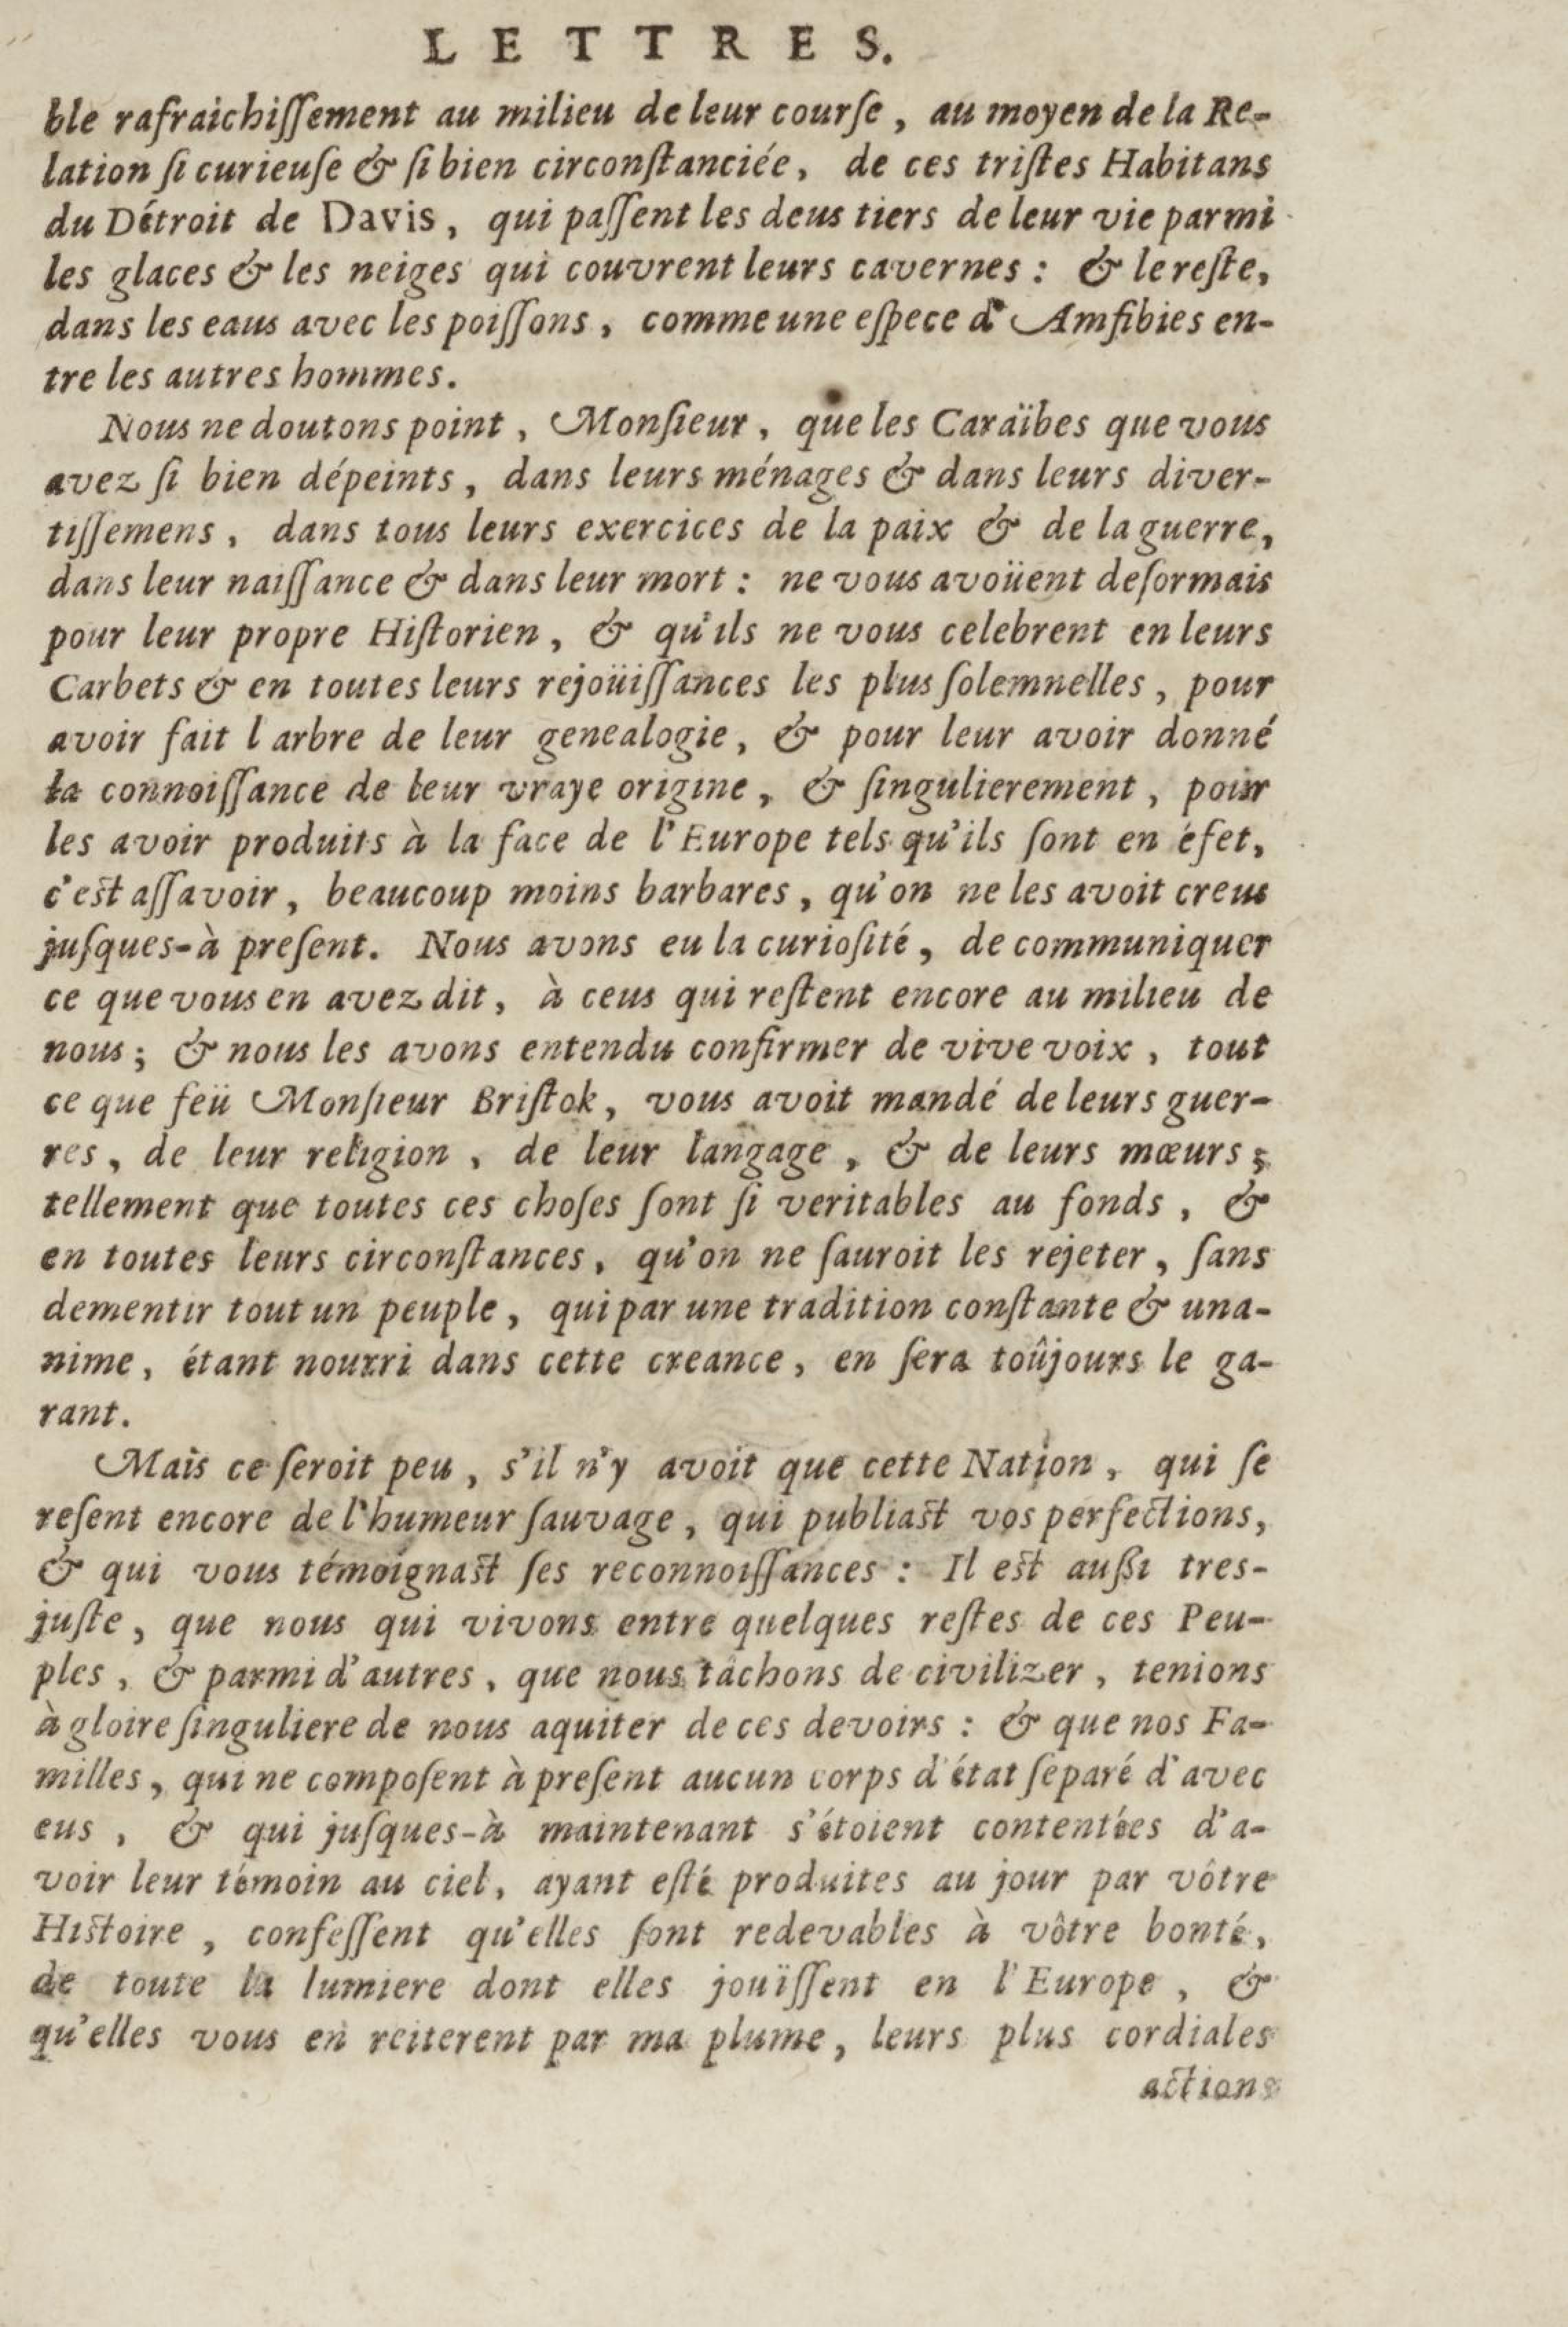 LETTRES.
ble rafraichiſſement au milieu de leur courſe, au moyen de la Re-
lation ſi curieuſe & ſi bien circonſtanciée, de ces triſtes Habitans
du Détroit de Davis, qui paſſent les deus tiers de leur vie parmi
les glaces & les neiges qui couvrent leurs cavernes: & le reſte,
dans les eaus avec les poiſſons, comme une eſpece d'Amfibies en-
tre les autres hommes.
Nous ne doutons point, Monſieur, que les Caraïbes que vous
avez ſi bien dépeints, dans leurs ménages & dans leurs diver-
tiſſemens, dans tous leurs exercices de la paix & de la guerre,
dans leur naiſſance & dans leur mort: ne vous avoüent deſormais
pour leur propre Hiſtorien, & qu'ils ne vous celebrent en leurs
Carbets & en toutes leurs rejoüiſſances les plus ſolemnelles, pour
avoir fait l arbre de leur genealogie, & pour leur avoir donné
la connoiſſance de leur vraye origine, & ſingulierement, pour
les avoir produits à la face de l'Europe tels qu'ils ſont en éfet,
c'eſt aſſavoir, beaucoup moins barbares, qu'on ne les avoit creus
juſques-à preſent. Nous avons eu la curioſité, de communiquer
ce que vous en avez dit, à ceus qui reſtent encore au milieu de
nous; & nous les avons entendu confirmer de vive voix, tout
ce que feü Monſieur Briſtok, vous avoit mandé de leurs guer-
res, de leur religion, de leur langage, & de leurs mœurs;
tellement que toutes ces choſes ſont ſi veritables au fonds, &
en toutes leurs circonſtances, qu'on ne ſauroit les rejeter, ſans
dementir tout un peuple, qui par une tradition conſtante & una-
nime, étant nourri dans cette creance, en ſera toûjours le ga-
rant.
Mais ce ſeroit peu, s'il n'y avoit que cette Nation, qui ſe
reſent encore de l'humeur ſauvage, qui publiaſt vos perfections,
& qui vous témoignaſt ſes reconnoiſſances: Il eſt auſſi tres-
juſte, que nous qui vivons entre quelques reſtes de ces Peu-
ples, & parmi d'autres, que nous tâchons de civilizer, tenions
à gloire ſinguliere de nous aquiter de ces devoirs: & que nos Fa-
milles, qui ne compoſent à preſent aucun corps d'état ſeparé d'avec
eus, & qui juſques-à maintenant s'étoient contentées d'a-
voir leur témoin au ciel, ayant eſté produites au jour par vôtre
Hiſtoire, confeſſent qu'elles ſont redevables à vôtre bonté,
de toute la lumiere dont elles jouïſſent en l'Europe, &
qu'elles vous en reiterent par ma plume, leurs plus cordiales
actions